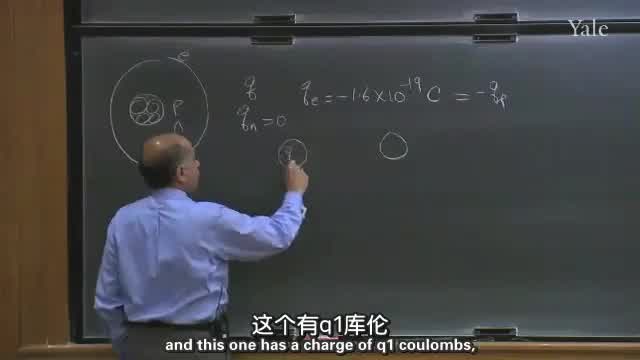 Yale
e
q
q_e = -1.6 × 10^-19 C = -q_p
P
n
q_n = 0
q
这个有q1库伦
and this one has a charge of q1 coulombs,